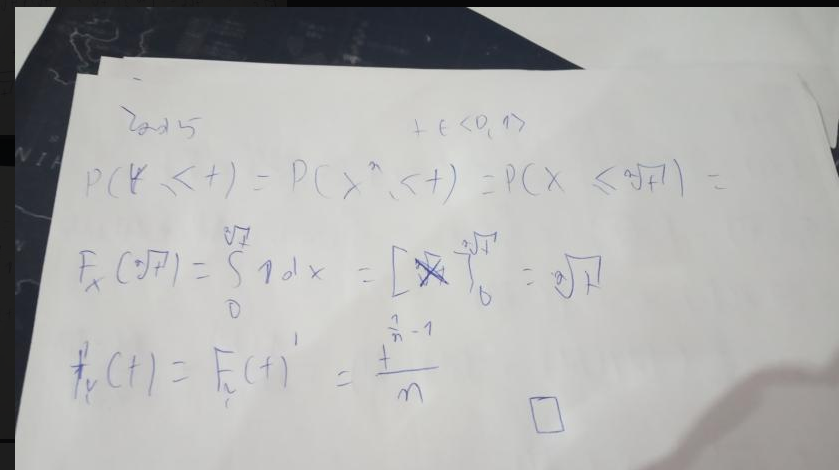 Zad 5 t ∈ <0,1>
P(Y < t) = P(Xⁿ < t) = P(X < ⁿ√t) =
F_X(ⁿ√t) = ∫₀^{ⁿ√t} 1 dx = [x]₀^{ⁿ√t} = ⁿ√t
f_Y(t) = F_Y(t)' = t^{1/n - 1} / n
□